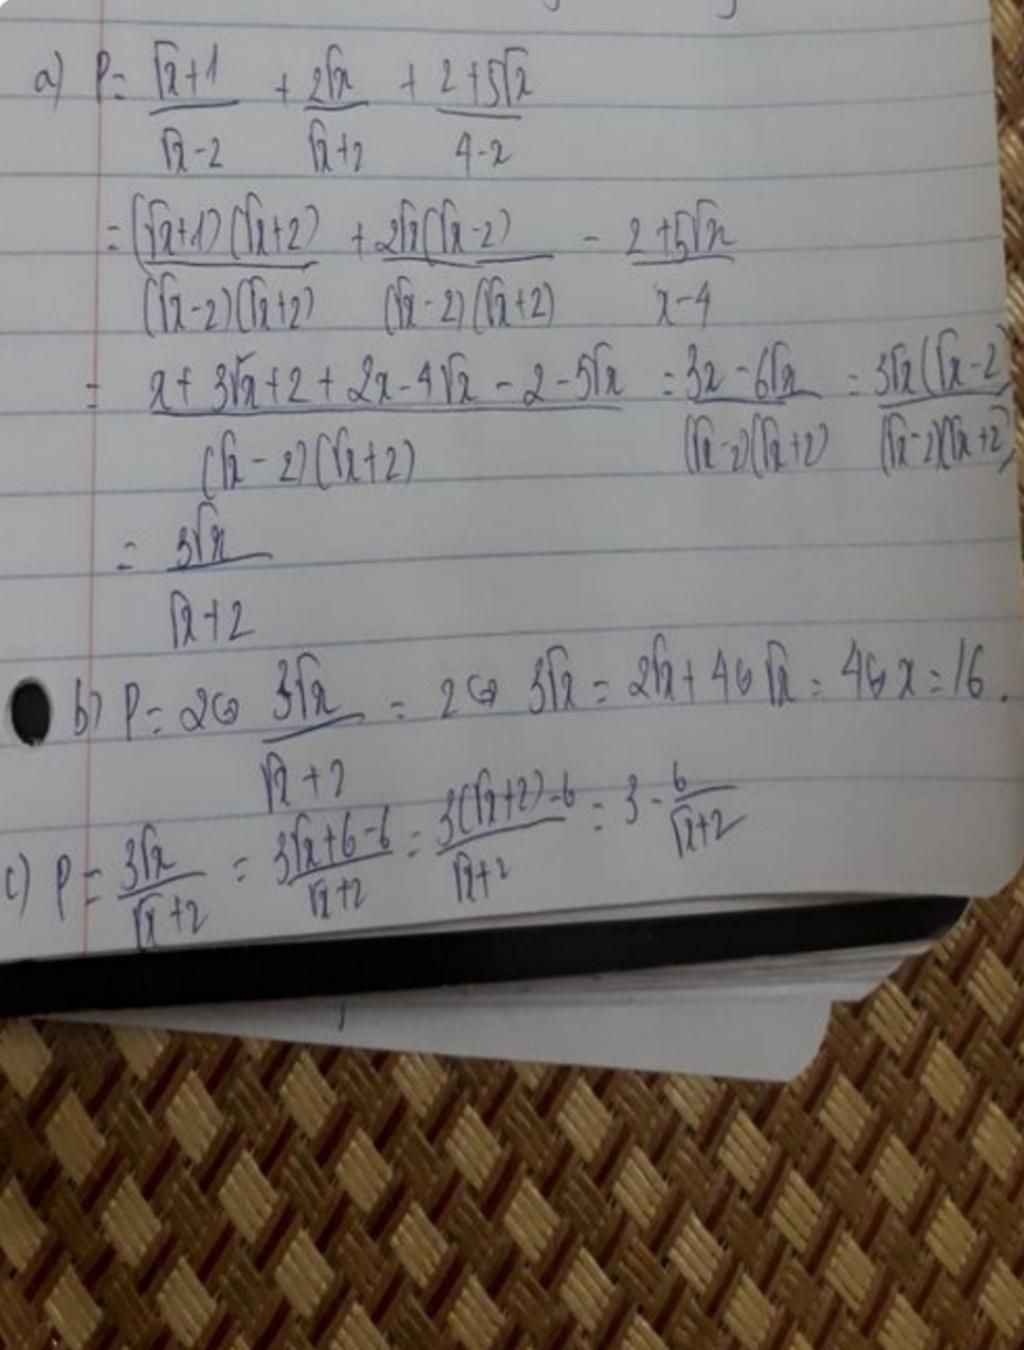 a) P = (√x+1)/(√x-2) + 2√x/(√x+2) + (2+5√x)/(4-x)
= (√x+1)(√x+2)/(√x-2)(√x+2) + 2√x(√x-2)/(√x-2)(√x+2) - (2+5√x)/(x-4)
= (x + 3√x + 2 + 2x - 4√x - 2 - 5√x)/(√x-2)(√x+2) = (3x - 6√x)/(√x-2)(√x+2) = 3√x(√x-2)/(√x-2)(√x+2)
= 3√x/(√x+2)
b) P = 2 ⇔ 3√x/(√x+2) = 2 ⇔ 3√x = 2√x + 4 ⇔ √x = 4 ⇔ x = 16.
c) P = 3√x/(√x+2) = (3√x+6-6)/(√x+2) = (3(√x+2)-6)/(√x+2) = 3 - 6/(√x+2)